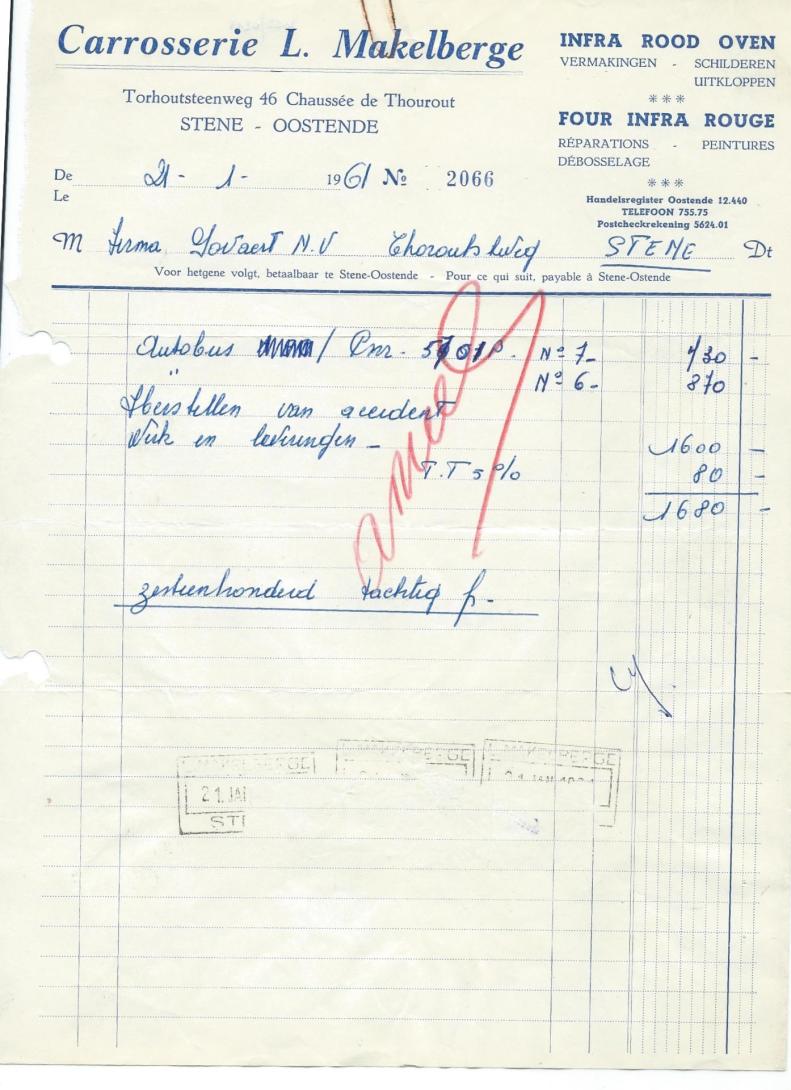 Carrosserie L. Makelberge
Torhoutsteenweg 46 Chaussée de Thourout
STENE - OOSTENDE
INFRA ROOD OVEN
VERMAKINGEN - SCHILDEREN
UITKLOPPEN
***
FOUR INFRA ROUGE
RÉPARATIONS - PEINTURES
DÉBOSSELAGE
***
Handelsregister Oostende 12.440
TELEFOON 755.75
Postcheckrekening 5624.01
De
Le
21- 1- 1961 No 2066
M Firma Govaert N.V Thoroutschweg STENE Dt
Voor hetgene volgt, betaalbaar te Stene-Oostende - Pour ce qui suit, payable à Stene-Ostende
Autobus / No 7- 730 -
" No 6- 870
Herstellen van accident
Werk en leveringen - 1600 -
T.T 5 % 80 -
1680 -
zestienhonderd tachtig fr-
L. MAKELBERGE
21. JAN
STE
L. MAKELBERGE
L. MAKELBERGE